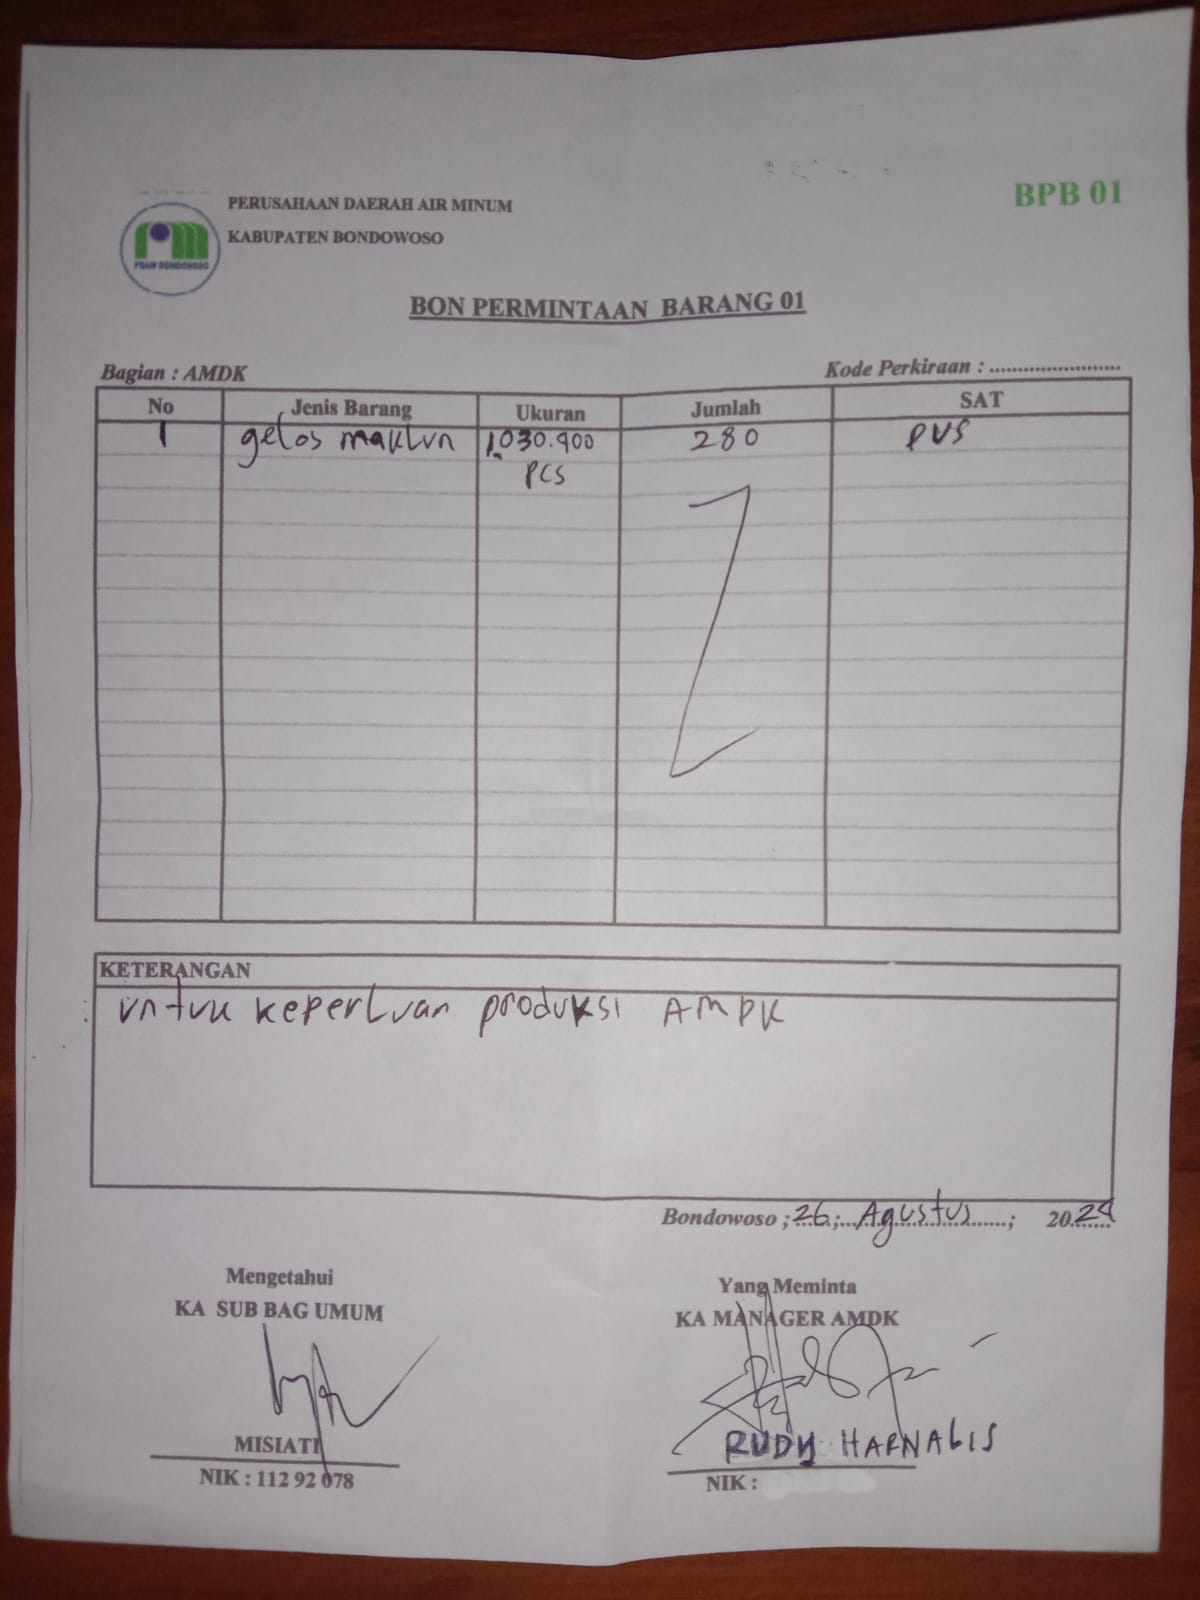 PERUSAHAAN DAERAH AIR MINUM
KABUPATEN BONDOWOSO
PDAM BONDOWOSO
BPB 01
BON PERMINTAAN BARANG 01
Bagian : AMDK
Kode Perkiraan : ........................
No Jenis Barang Ukuran Jumlah SAT
1 gelos maklun 1.030.400 280 pus
pcs
KETERANGAN
untuk keperluan produksi AMDK
Bondowoso ; 26 ; Agustus ; 2024
Mengetahui
KA SUB BAG UMUM
MISIATI
NIK : 112 92 078
Yang Meminta
KA MANAGER AMDK
RUDY HARNALIS
NIK :